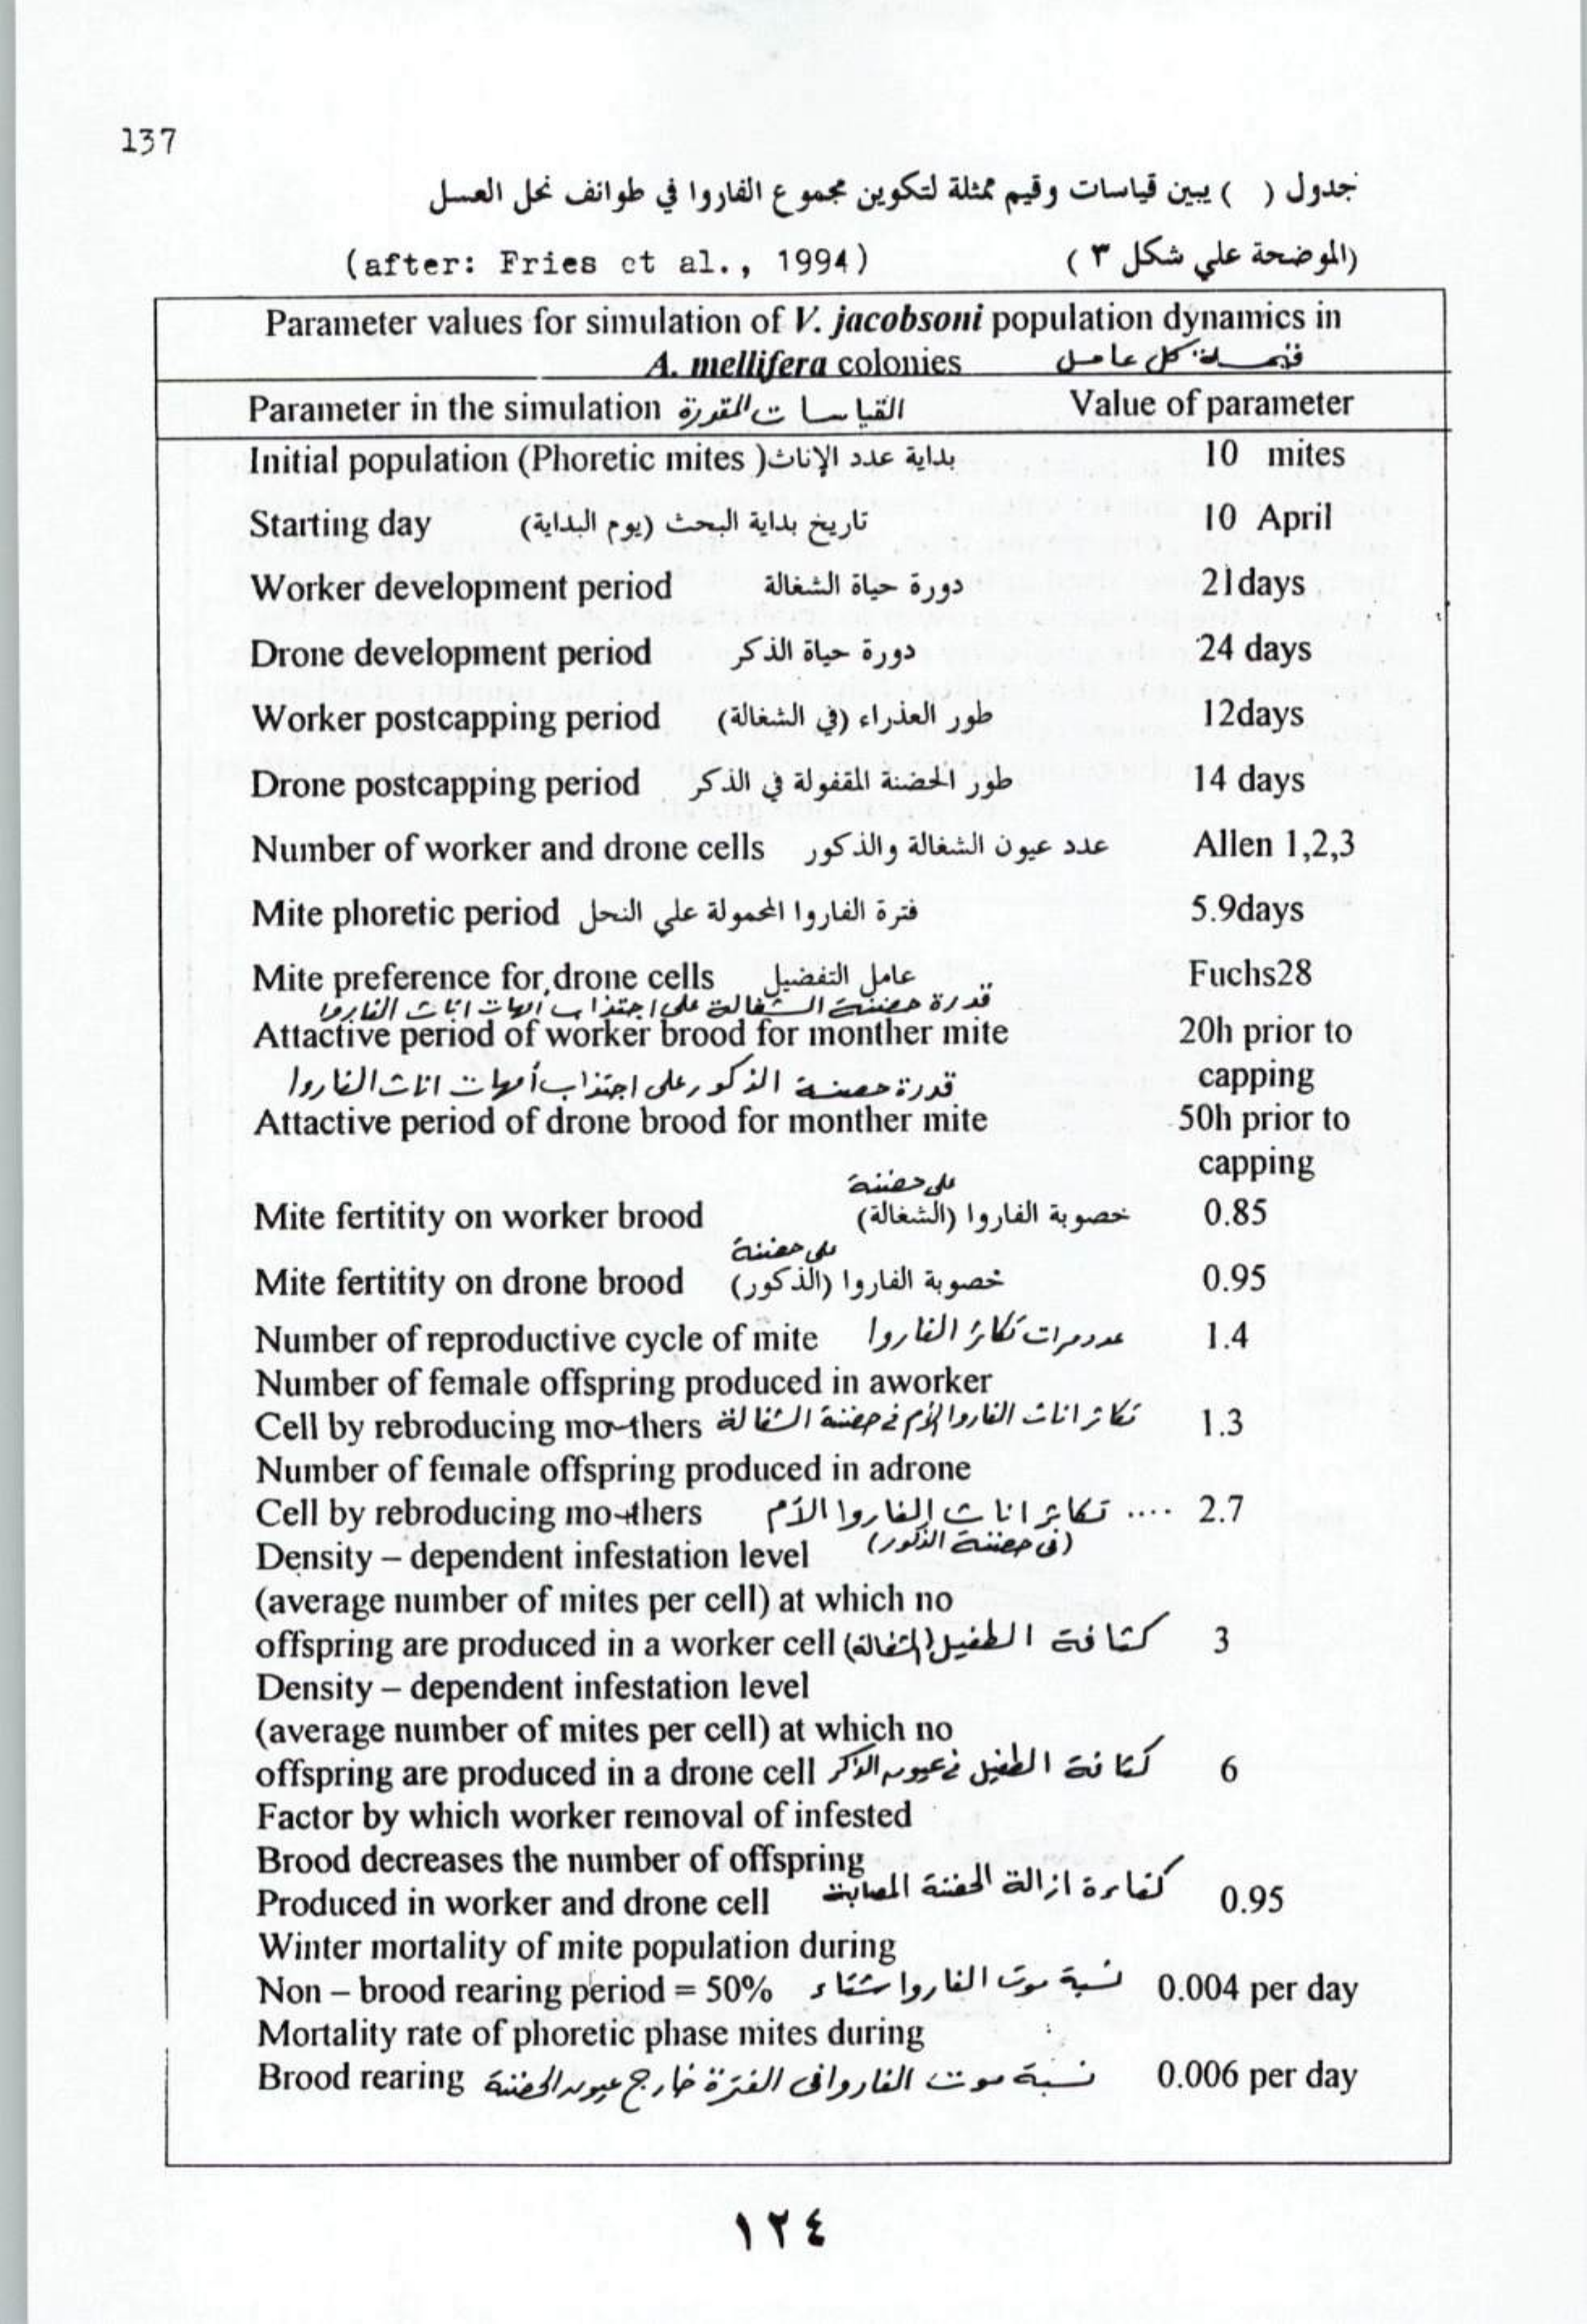 137
جدول ( ) يبين قياسات وقيم ممثلة لتكوين مجموع الفاروا في طوائف نحل العسل
(الموضحة علي شكل ٣ ) (after: Fries et al., 1994)
Parameter values for simulation of V. jacobsoni population dynamics in
A. mellifera colonies قيمة كل عامل
Parameter in the simulation القياسات المقدرة Value of parameter
Initial population (Phoretic mites )بداية عدد الإناث 10 mites
Starting day تاريخ بداية البحث (يوم البداية) 10 April
Worker development period دورة حياة الشغالة 21days
Drone development period دورة حياة الذكر 24 days
Worker postcapping period طور العذراء (في الشغالة) 12days
Drone postcapping period طور الحضنة المقفولة في الذكر 14 days
Number of worker and drone cells عدد عيون الشغالة والذكور Allen 1,2,3
Mite phoretic period فترة الفاروا المحمولة علي النحل 5.9days
Mite preference for drone cells عامل التفضيل Fuchs28
قدرة حضنة الشغالة على اجتذاب امهات اناث الفاروا
Attactive period of worker brood for monther mite 20h prior to
capping
قدرة حضنة الذكور على اجتذاب أمهات اناث الفاروا
Attactive period of drone brood for monther mite 50h prior to
capping
على حضنة
Mite fertitity on worker brood خصوبة الفاروا (الشغالة) 0.85
على حضنة
Mite fertitity on drone brood خصوبة الفاروا (الذكور) 0.95
Number of reproductive cycle of mite عدد مرات تكاثر الفاروا 1.4
Number of female offspring produced in aworker
Cell by rebroducing mothers تكاثر اناث الفاروا الأم في حضنة الشغالة 1.3
Number of female offspring produced in adrone
Cell by rebroducing mothers تكاثر اناث الفاروا الأم .... 2.7
(فى حضنة الذكور)
Density – dependent infestation level
(average number of mites per cell) at which no
offspring are produced in a worker cell كثافة الطفيل (الشغالة) 3
Density – dependent infestation level
(average number of mites per cell) at which no
offspring are produced in a drone cell كثافة الطفيل في عيون الذكر 6
Factor by which worker removal of infested
Brood decreases the number of offspring
Produced in worker and drone cell كفاءة ازالة الحضنة المصابة 0.95
Winter mortality of mite population during
Non – brood rearing period = 50% نسبة موت الفاروا شتاء 0.004 per day
Mortality rate of phoretic phase mites during
Brood rearing نسبة موت الفاروا فى الفترة خارج عيون الحضنة 0.006 per day
١٢٤